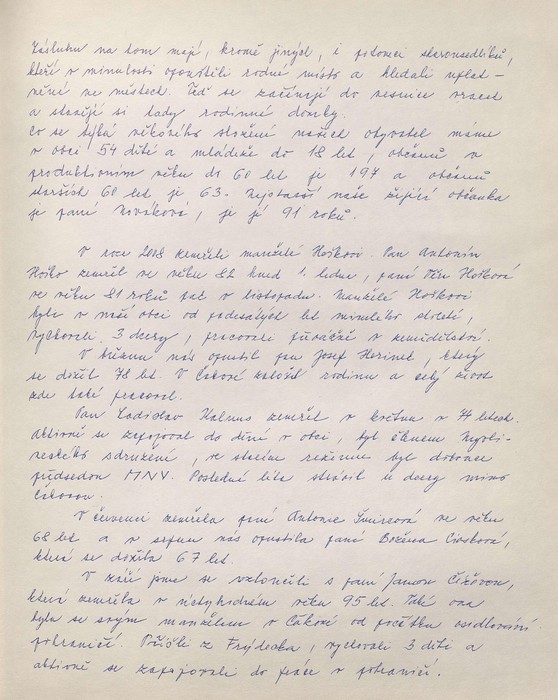 Zásluhu na tom mají, kromě jiných, i potomci starousedlíků,
kteří v minulosti opouštěli rodné místo a hledali uplat-
nění ve městech. Teď se začínají do vesnice vracet
a stavějí si tady rodinné domky.
Co se týká věkového složení našich obyvatel máme
v obci 54 dětí a mládeže do 18 let, občanů v
produktivním věku do 60 let je 197 a občanů
starších 60 let je 63. Nejstarší naše žijící občanka
je paní Nováková, je jí 91 roků.
V roce 2008 zemřeli manželé Hoškovi. Pan Antonín
Hoško zemřel ve věku 82 hned 1. ledna, paní Věra Hošková
ve věku 81 roků pak v listopadu. Manželé Hoškovi
byli v naší obci od padesátých let minulého století,
vychovali 3 dcery, pracovali převážně v zemědělství.
V březnu nás opustil pan Josef Horínek, který
se dožil 78 let. V Čakové založil rodinu a celý život
zde také pracoval.
Pan Ladislav Kalmus zemřel v květnu v 74 letech.
Aktivně se zapojoval do dění v obci, byl členem Mysli-
veckého sdružení, ve starém režimu byl dokonce
předsedou MNV. Poslední léta strávil u dcery mimo
Čakovou.
V červenci zemřela paní Antonie ve věku
68 let a v srpnu nás opustila paní Božena
která se dožila 67 let.
V září jsme se rozloučili s paní Janou Čížovou,
která zemřela v úctyhodném věku 95 let. Také ona
byla se svým manželem v Čakové od počátku osidlování
pohraničí. Přišli z Frýdecka, vychovali 3 děti a
aktivně se zapojovali do práce v pohraničí.